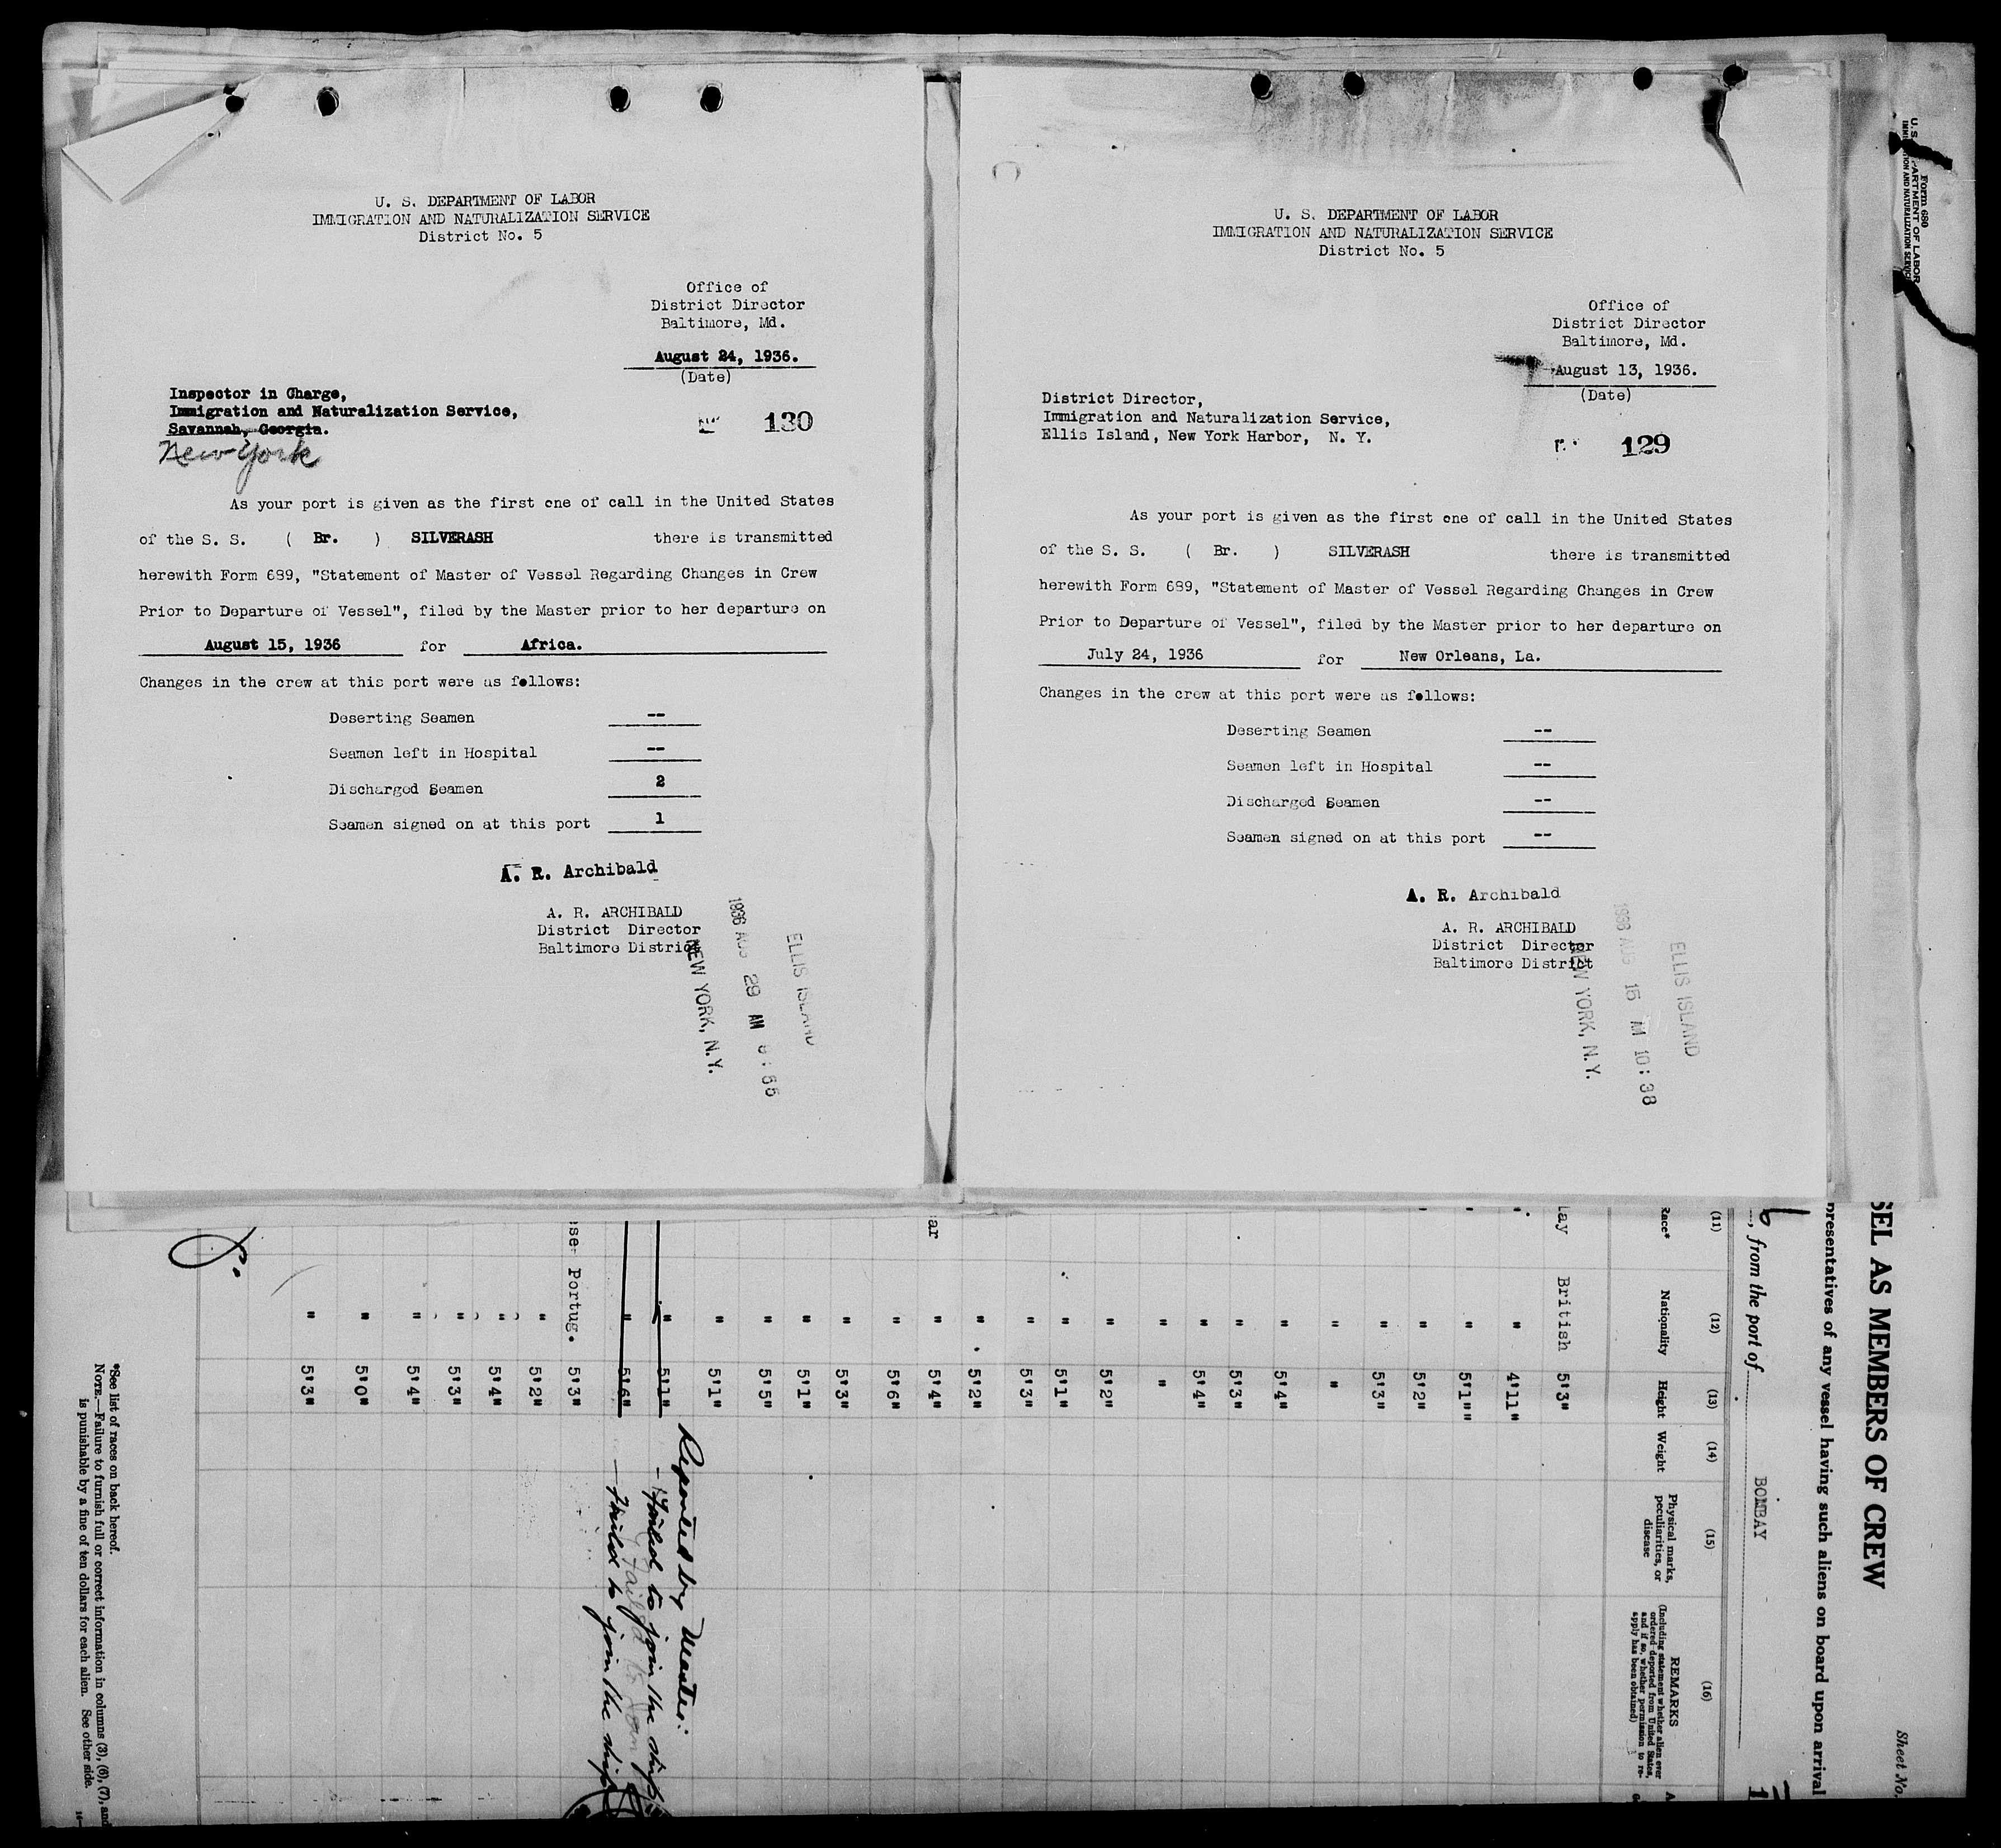 U. S. DEPARTMENT OF LABOR
IMMIGRATION AND NATURALIZATION SERVICE
District No. 5
Office of
District Director
Baltimore, Md.
August 24, 1936.
(Date)
Inspector in Charge,
Immigration and Naturalization Service,
Savannah, Georgia.
New York
130
As your port is given as the first one of call in the United States
of the S. S. ( Br. ) SILVERASH there is transmitted
herewith Form 689, "Statement of Master of Vessel Regarding Changes in Crew
Prior to Departure of Vessel", filed by the Master prior to her departure on
August 15, 1936 for Africa.
Changes in the crew at this port were as follows:
Deserting Seamen --
Seamen left in Hospital --
Discharged Seamen 2
Seamen signed on at this port 1
A. R. Archibald
A. R. ARCHIBALD
District Director
Baltimore District
ELLIS ISLAND
1936 AUG 29 AM
NEW YORK, N.Y.
U. S. DEPARTMENT OF LABOR
IMMIGRATION AND NATURALIZATION SERVICE
District No. 5
Office of
District Director
Baltimore, Md.
August 13, 1936.
(Date)
District Director,
Immigration and Naturalization Service,
Ellis Island, New York Harbor, N. Y.
129
As your port is given as the first one of call in the United States
of the S. S. ( Br. ) SILVERASH there is transmitted
herewith Form 689, "Statement of Master of Vessel Regarding Changes in Crew
Prior to Departure of Vessel", filed by the Master prior to her departure on
July 24, 1936 for New Orleans, La.
Changes in the crew at this port were as follows:
Deserting Seamen --
Seamen left in Hospital --
Discharged Seamen --
Seamen signed on at this port --
A. R. Archibald
A. R. ARCHIBALD
District Director
Baltimore District
ELLIS ISLAND
1936 AUG 15 M 10:38
NEW YORK, N.Y.
Form 680
U. S. DEPARTMENT OF LABOR
IMMIGRATION AND NATURALIZATION SERVICE
Sheet No.
SEL AS MEMBERS OF CREW
presentatives of any vessel having such aliens on board upon arrival
, from the port of BOMBAY
(11) (12) (13) (14) (15) (16)
Race* Nationality Height Weight Physical marks, peculiarities, or disease REMARKS
(Including statement whether alien ever
ordered deported from United States,
and if so, whether permission to re-
apply has been obtained)
lay British 5'3"
" 4'11"
" 5'1""
" 5'2"
" 5'3"
" "
" 5'4"
" 5'3"
" 5'4"
" "
" 5'2"
" 5'1"
" 5'3"
" 5'2"
ar " 5'4"
" 5'6"
" 5'3"
" 5'1"
" 5'5"
" 5'1"
Reported by Master:
" 5'1" - Failed to join the ship
" 5'6" - Failed to join the ship
se- Portug. 5'3"
" 5'2"
" 5'4"
" 5'3"
" 5'4"
" 5'0"
" 5'3"
*See list of races on back hereof.
NOTE.—Failure to furnish full or correct information in columns (3), (6), (7), and
is punishable by a fine of ten dollars for each alien. See other side.